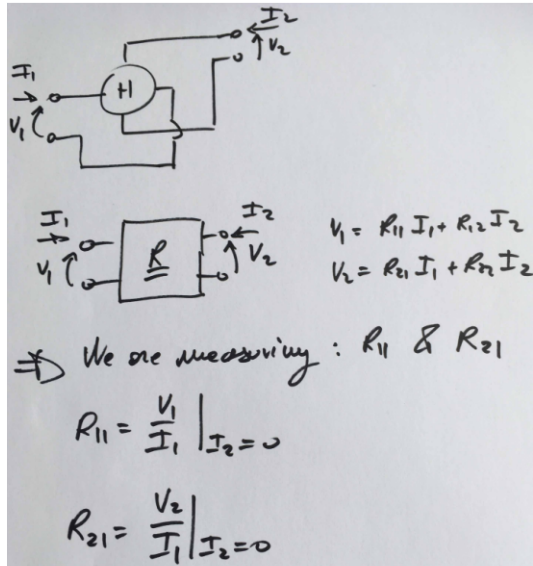 I₂
V₂
I₁
+1
V₁
I₁
I₂
V₁
R
V₂
V₁ = R₁₁ I₁ + R₁₂ I₂
V₂ = R₂₁ I₁ + R₂₂ I₂
⇒ We are measuring : R₁₁ & R₂₁
R₁₁ = V₁/I₁ | I₂=0
R₂₁ = V₂/I₁ | I₂=0